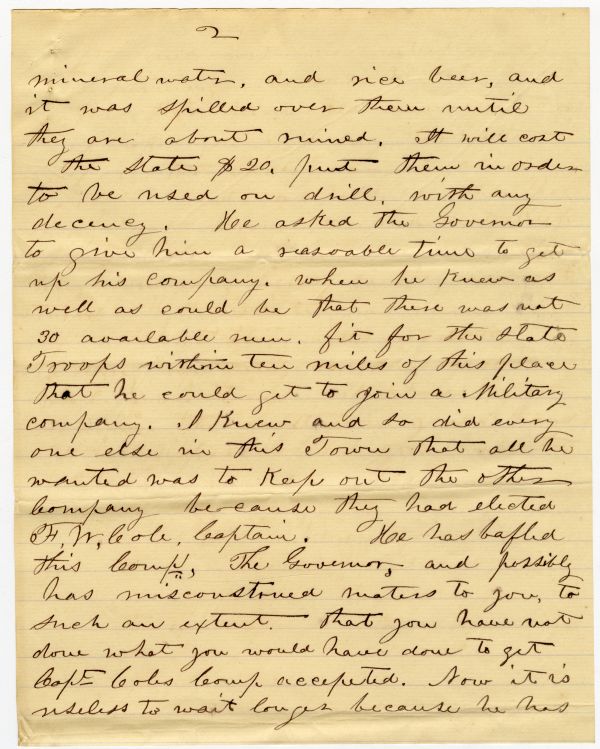 2
mineral water, and rice beer, and
it was spilled over them until
they are about ruined. It will cost
the State $20. put them in order
to be used on drill, with any
decency. He asked the Governor
to give him a reasoable time to get
up his company. when he Knew as
well as could be that there was not
30 available men. fit for the State
Troops within ten miles of this place
that he could get to join a Military
company. I Knew and so did every
one else in this Town that all he
wanted was to Keep out the other
Company because they had elected
F. W. Cole, Captain. He has bafled
this Comp, The Governor, and possibly
has misconstrued maters to you, to
such an extent. that you have not
done what you would have done to get
Capt Coles Comp accepeted. Now it is
useless to wait longer because he has